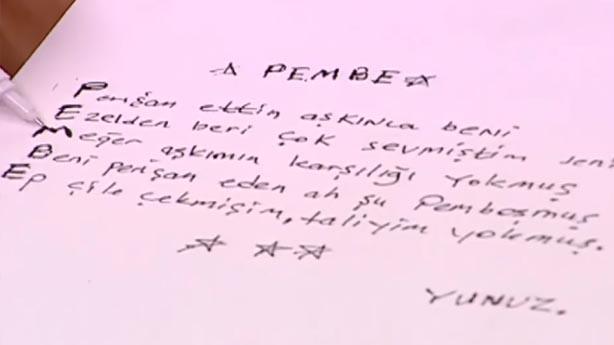 PEMBE
Perişan ettin aşkınla beni
Ezelden beri çok sevmiştim seni
Meğer aşkımın karşılığı yokmuş
Beni perişan eden ah şu Pemboşmuş
Ep çile çekmişim, taliyim yokmuş.
YUNUZ.